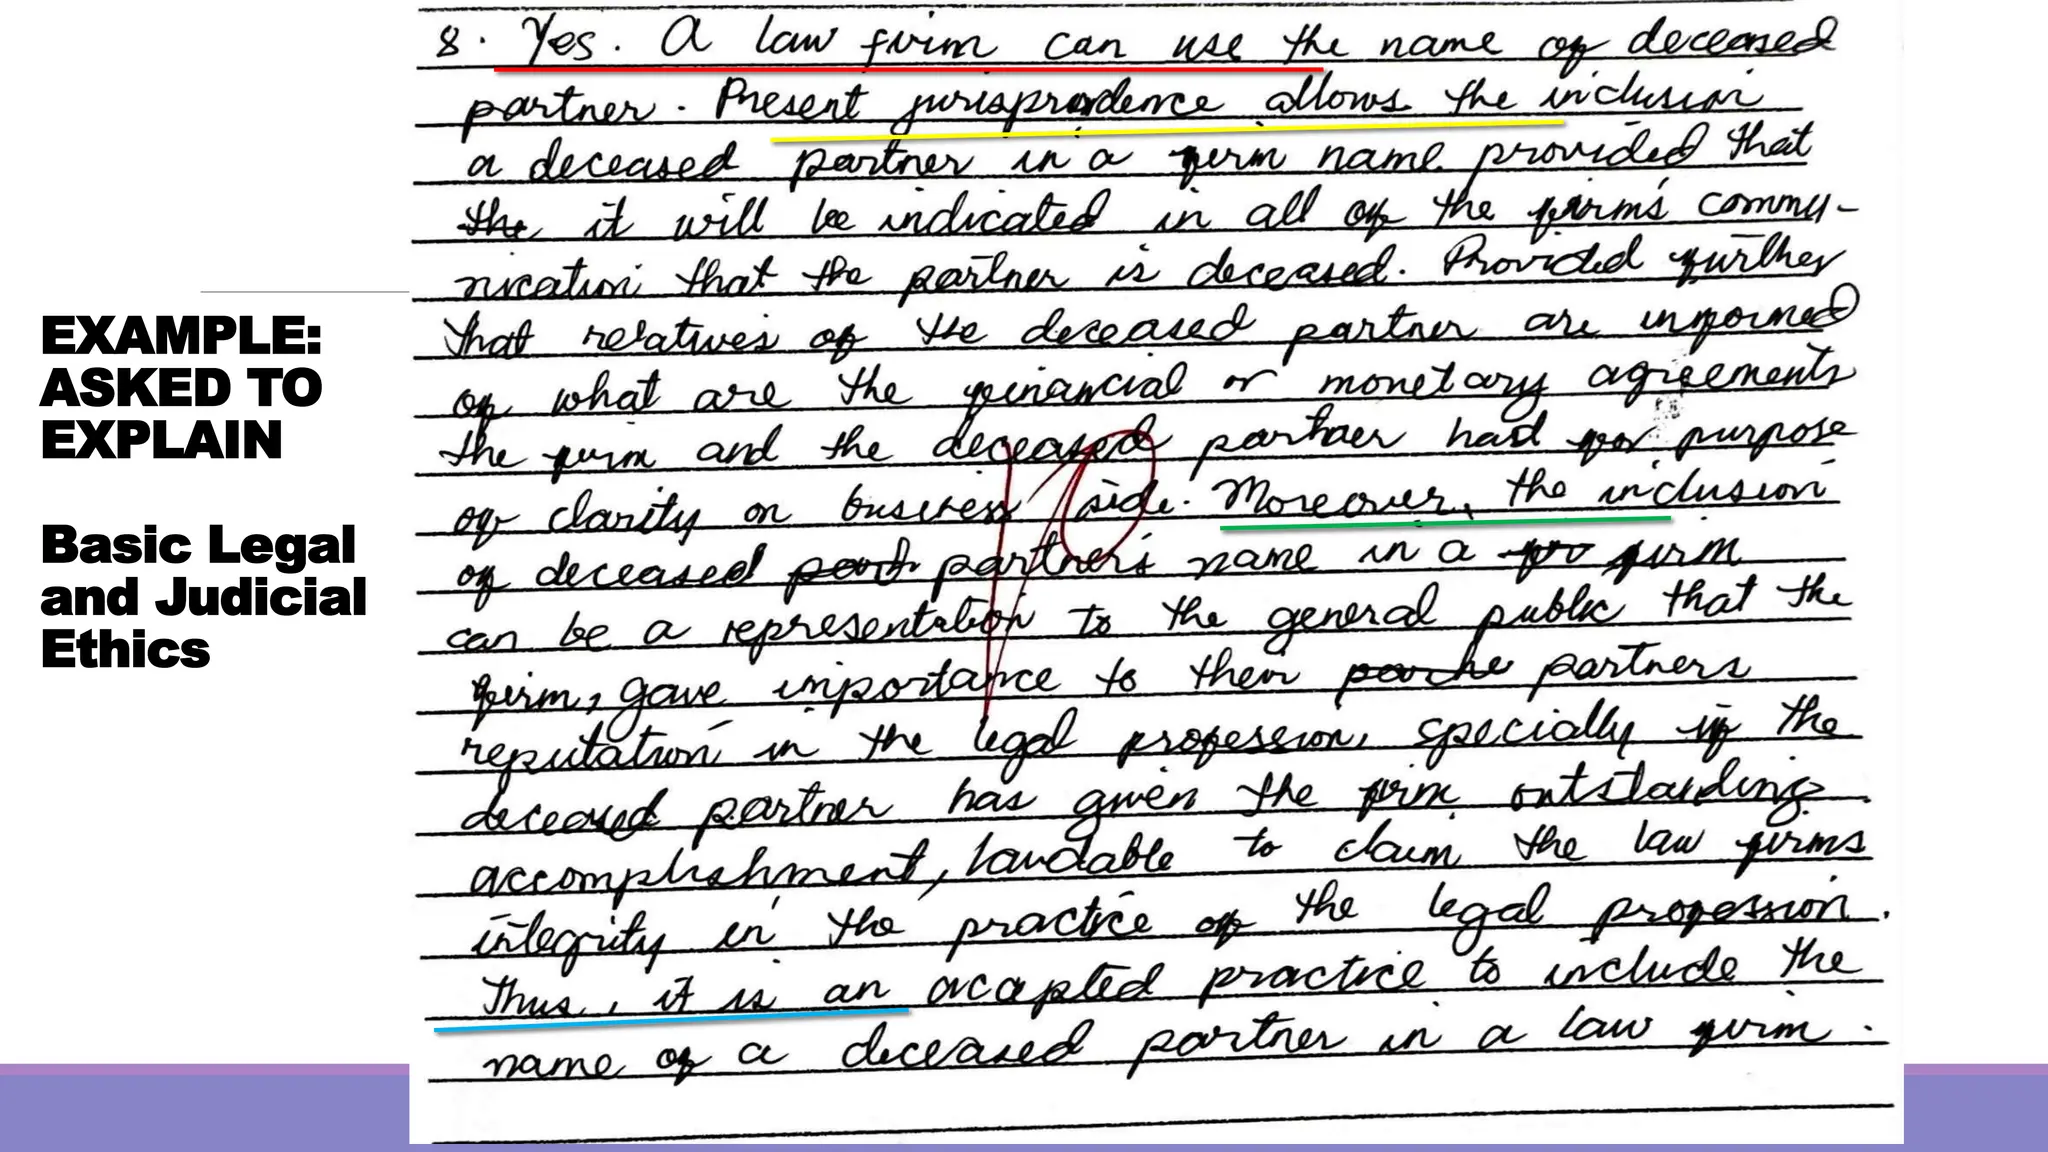 EXAMPLE:
ASKED TO
EXPLAIN
Basic Legal
and Judicial
Ethics
8. Yes. A law firm can use the name of deceased
partner. Present jurisprudence allows the inclusion
a deceased partner in a firm name provided that
the it will be indicated in all of the firm's commu-
nication that the partner is deceased. Provided further
that relatives of the deceased partner are informed
of what are the financial or monetary agreements
the firm and the deceased partner had for purpose
of clarity on business side. Moreover, the inclusion
of deceased part partner's name in a firm
can be a representation to the general public that the
firm, gave importance to their partners
reputation in the legal profession, specially if the
deceased partner has given the firm outstanding
accomplishment, laudable to claim the law firms
integrity in the practice of the legal profession.
Thus, it is an accepted practice to include the
name of a deceased partner in a law firm.
10